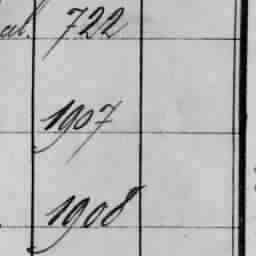 al. 722
1907
1908